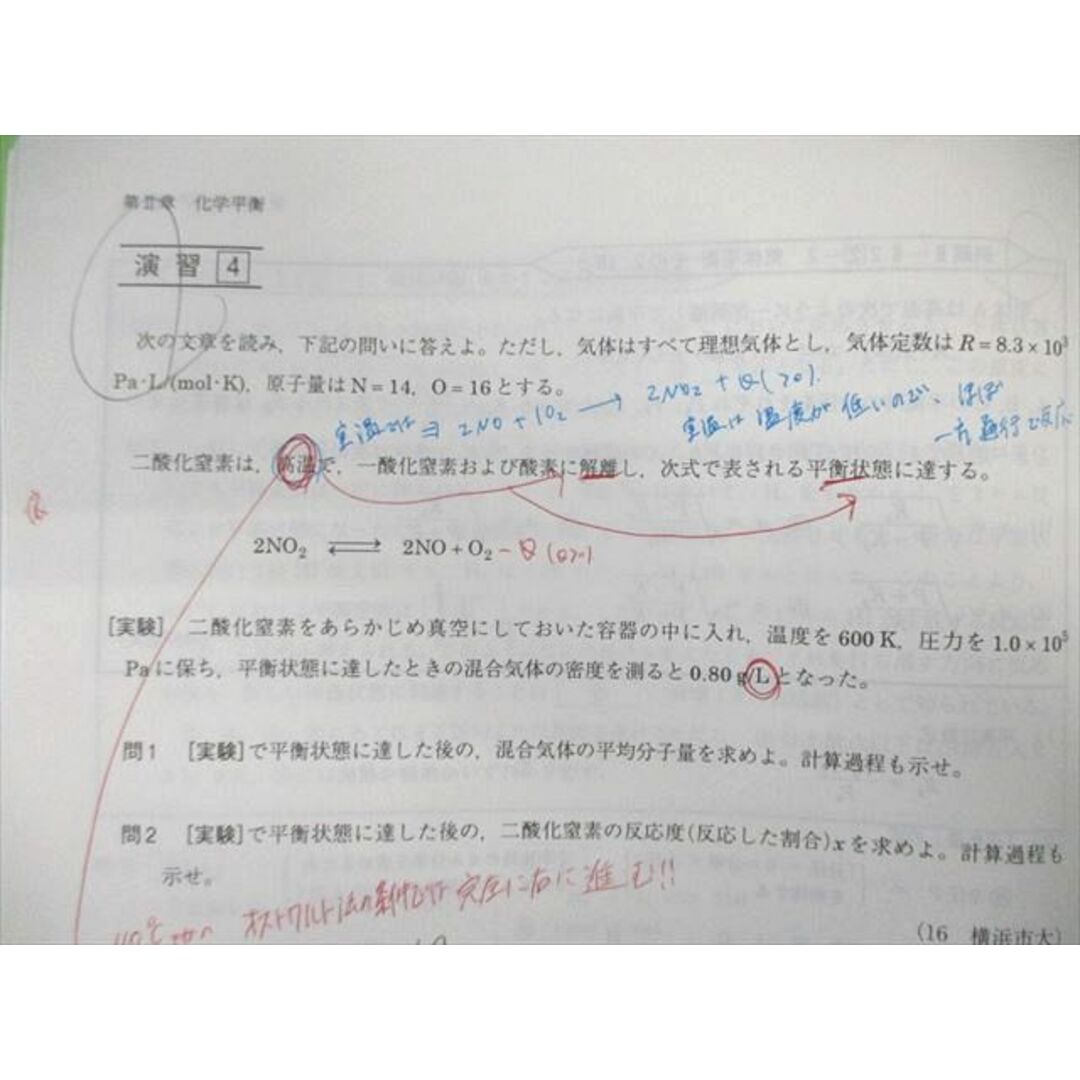 第Ⅱ章 化学平衡
演習 4
次の文章を読み，下記の問いに答えよ。ただし，気体はすべて理想気体とし，気体定数は R＝8.3×10³
Pa·L/(mol·K)，原子量は N＝14，O＝16とする。
室温では ⇒ 2NO + 1O₂ → 2NO₂ + Q(>0).
室温は温度が低いので、ほぼ
一方通行で反応
二酸化窒素は，高温で，一酸化窒素および酸素に解離し，次式で表される平衡状態に達する。
2NO₂ ⇄ 2NO＋O₂ − Q (Q>0)
［実験］ 二酸化窒素をあらかじめ真空にしておいた容器の中に入れ，温度を 600 K，圧力を 1.0×10⁵
Paに保ち，平衡状態に達したときの混合気体の密度を測ると 0.80 g/L となった。
問1 ［実験］で平衡状態に達した後の，混合気体の平均分子量を求めよ。計算過程も示せ。
問2 ［実験］で平衡状態に達した後の，二酸化窒素の反応度(反応した割合)xを求めよ。計算過程も
示せ。
オストワルト法の条件だが 完全に右に進む!!
(16 横浜市大)